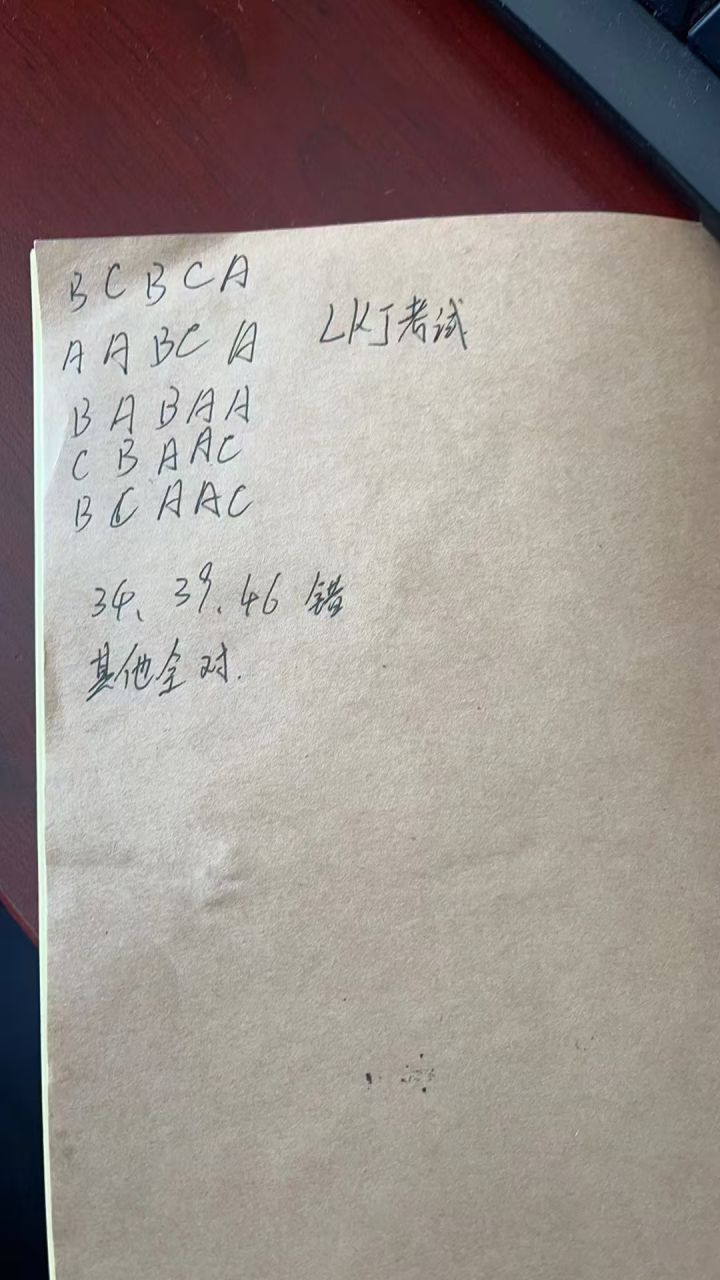 B C B C A
A A B C A LKJ考试
B A B A A
C B A A C
B C A A C
34、39、46 错
其他全对.